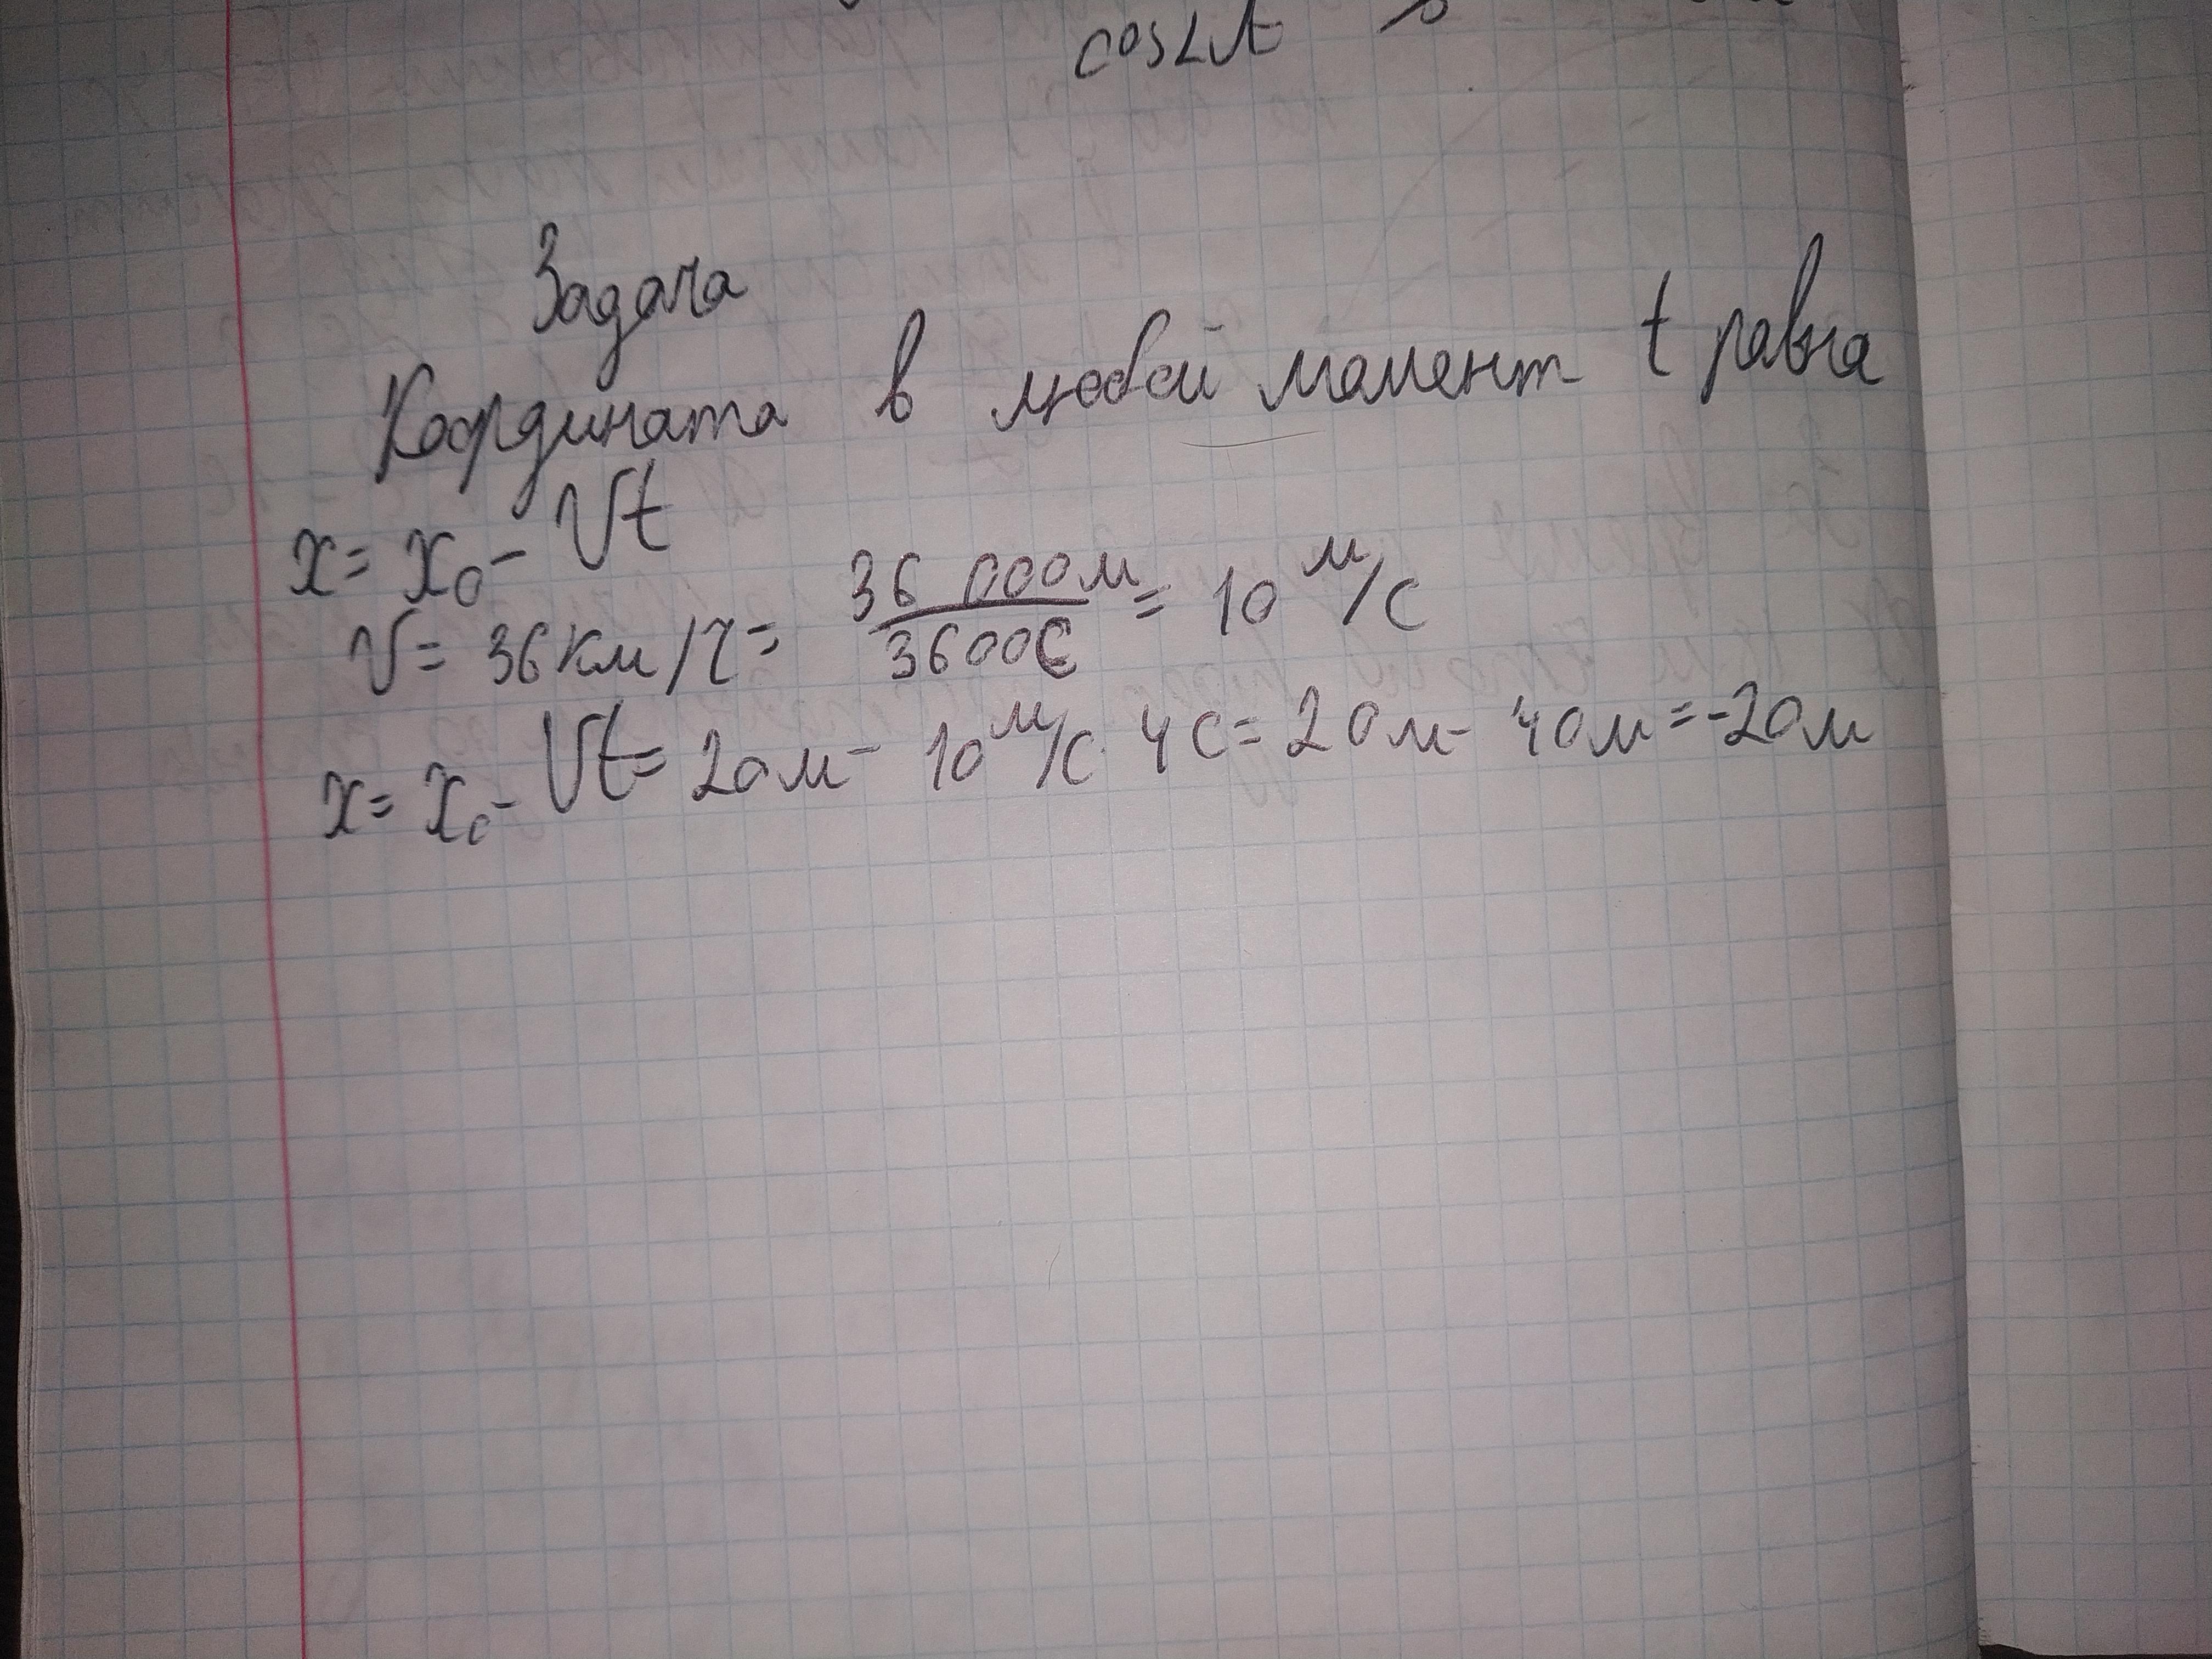 cosLt
Задача
Координата в любой момент t равна
x = x₀ - Vt
V = 36 км/ч = 36 000 м / 3600 с = 10 м/с
x = x₀ - Vt = 20 м - 10 м/с · 4 с = 20 м - 40 м = -20 м